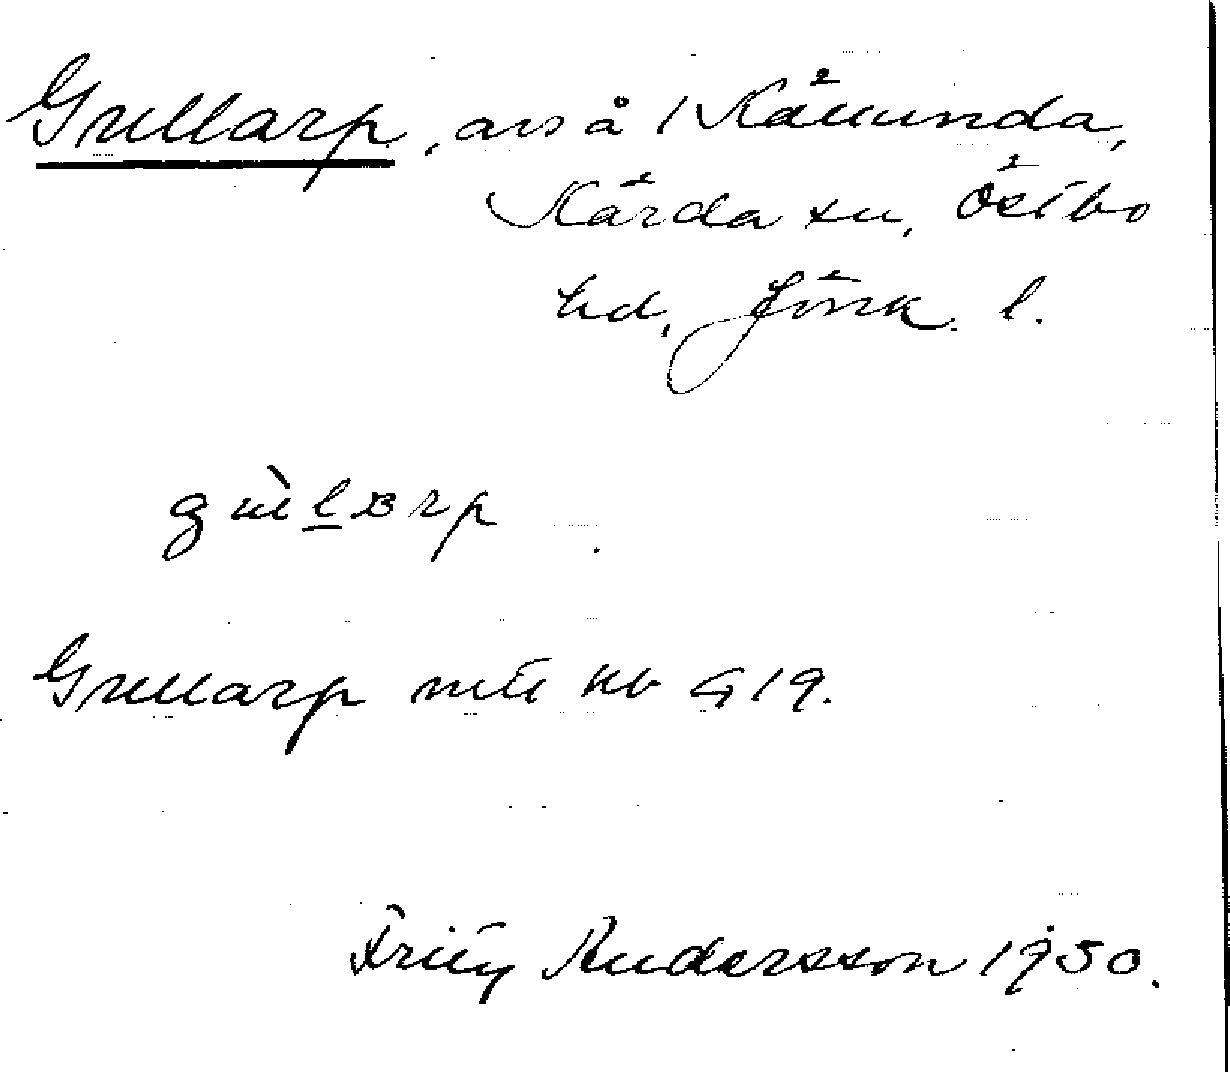 Gullarp, avs å 1 Kämunda,
Kärda sn, Östbo
hd, Jönk. l.
gùl̲ʙrp
Gullarp mtl kb G 19.
Fritz Andersson 1930.